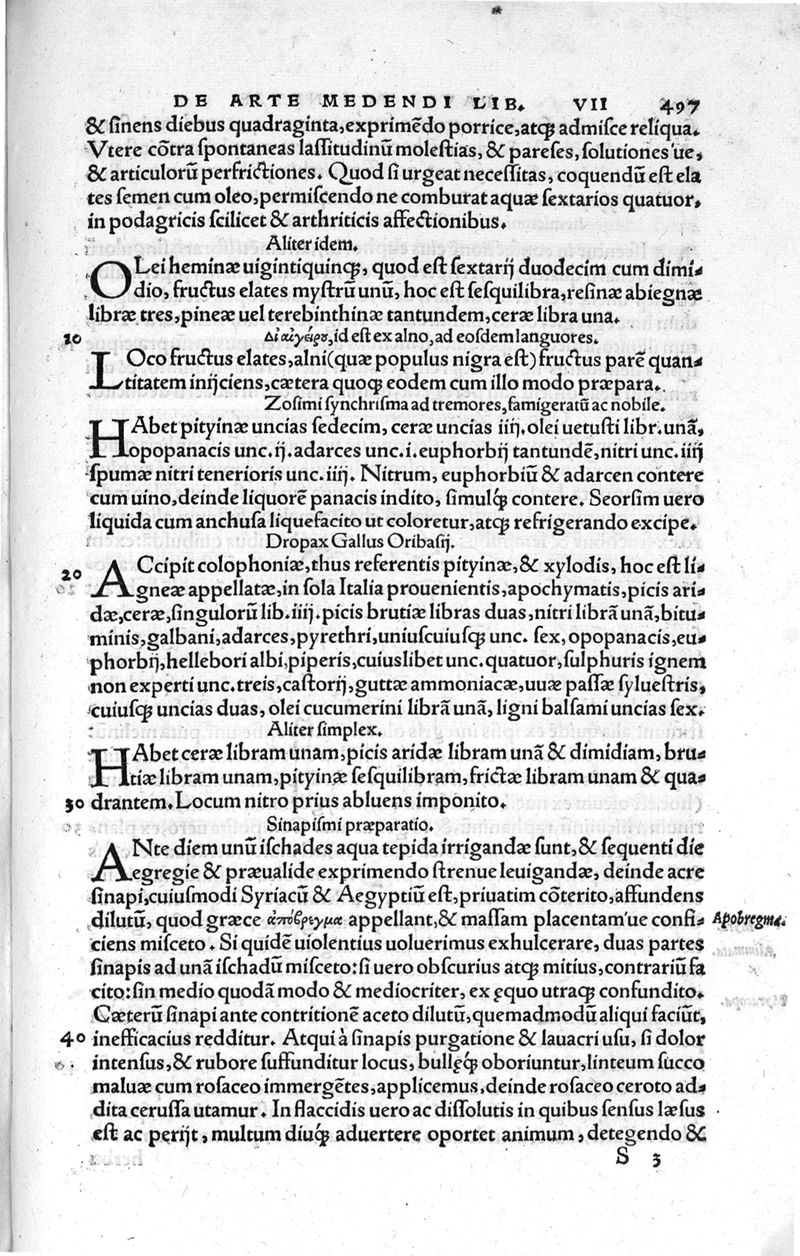 DE ARTE MEDENDI LIB. VII 497
& sinens diebus quadraginta,exprimẽdo porrice,atqꝫ admisce reliqua.
Vtere cõtra spontaneas lassitudinũ molestias, & pareses, solutiones'ue,
& articulorũ perfrictiones. Quod si urgeat necessitas, coquendũ est ela
tes semen cum oleo,permiscendo ne comburat aquæ sextarios quatuor,
in podagricis scilicet & arthriticis affectionibus.
Aliter idem.
OLei heminæ uigintiquinqꝫ, quod est sextarij duodecim cum dimi-
dio, fructus elates mystrũ unũ, hoc est sesquilibra,resinæ abiegnæ
libræ tres,pineæ uel terebinthinæ tantundem,ceræ libra una.
10 Δι αἰγείρου,id est ex alno, ad eosdem languores.
LOco fructus elates,alni(quæ populus nigra est)fructus parẽ quan-
titatem inijciens,cætera quoqꝫ eodem cum illo modo præpara.
Zosimi synchrisma ad tremores,famigeratũ ac nobile.
HAbet pityinæ uncias sedecim, ceræ uncias iiij.olei uetusti libr.unã,
opopanacis unc.ij.adarces unc.i.euphorbij tantundẽ,nitri unc.iiij
spumæ nitri tenerioris unc.iiij. Nitrum, euphorbiũ & adarcen contere
cum uino,deinde liquorẽ panacis indito, simulqꝫ contere. Seorsim uero
liquida cum anchusa liquefacito ut coloretur,atqꝫ refrigerando excipe.
Dropax Gallus Oribasij.
20 ACcipit colophoniæ,thus referentis pityinæ,& xylodis, hoc est li-
gneæ appellatæ,in sola Italia prouenientis,apochymatis,picis ari-
dæ,ceræ,singulorũ lib.iiij.picis brutiæ libras duas,nitri librã unã,bitu-
minis,galbani,adarces,pyrethri,uniuscuiusqꝫ unc. sex,opopanacis,eu-
phorbij,hellebori albi,piperis,cuiuslibet unc.quatuor,sulphuris ignem
non experti unc.treis,castorij,guttæ ammoniacæ,uuæ passæ syluestris,
cuiusqꝫ uncias duas, olei cucumerini librã unã, ligni balsami uncias sex.
Aliter simplex.
HAbet ceræ libram unam,picis aridæ libram unã & dimidiam, bru-
tiæ libram unam,pityinæ sesquilibram,frictæ libram unam & qua-
30 drantem.Locum nitro prius abluens imponito.
Sinapismi præparatio.
ANte diem unũ ischades aqua tepida irrigandæ sunt,& sequenti die
egregie & præualide exprimendo strenue leuigandæ, deinde acre
sinapi,cuiusmodi Syriacũ & Aegyptiũ est,priuatim cõterito,affundens
dilutũ, quod græce ἀπόβρεγμα appellant,& massam placentam'ue confi- Apobregma.
ciens misceto. Si quidẽ uiolentius uoluerimus exhulcerare, duas partes
sinapis ad unã ischadũ misceto:si uero obscurius atqꝫ mitius,contrariũ fa
cito:sin medio quodã modo & mediocriter, ex ęquo utraqꝫ confundito.
Cæterũ sinapi ante contritionẽ aceto dilutũ,quemadmodũ aliqui faciũt,
40 inefficacius redditur. Atqui à sinapis purgatione & lauacri usu, si dolor
intensus,& rubore suffunditur locus, bullęqꝫ oboriuntur,linteum succo
maluæ cum rosaceo immergẽtes,applicemus,deinde rosaceo ceroto ad-
dita cerussa utamur. In flaccidis uero ac dissolutis in quibus sensus læsus
est ac perijt, multum diuqꝫ aduertere oportet animum, detegendo &
S 3